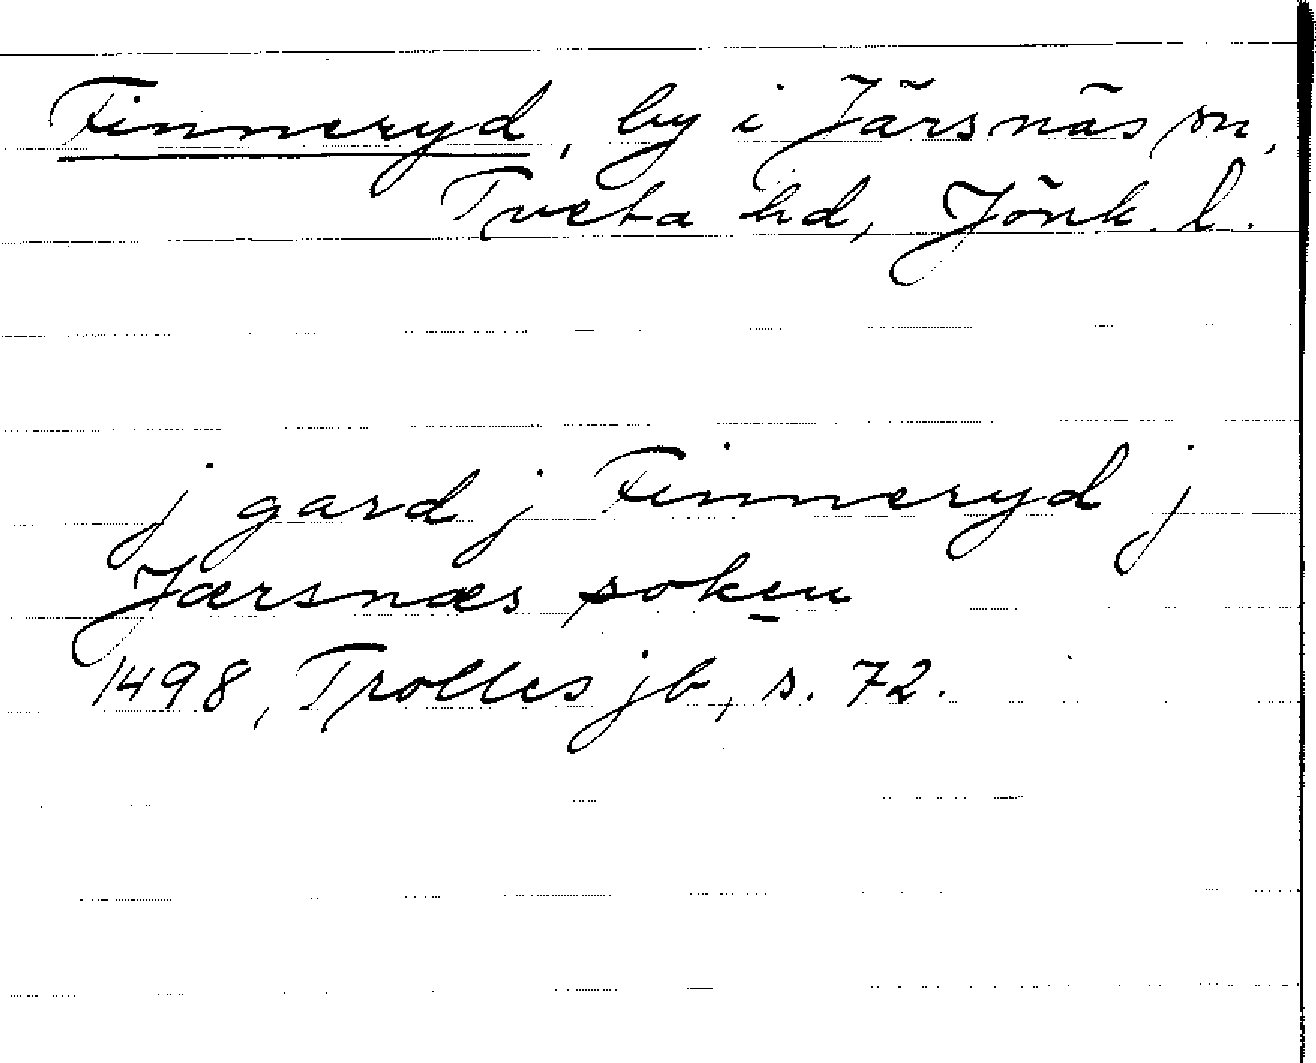 Finneryd, by i Järsnäs sn,
Tveta hd, Jönk. l.
j gard j Finneryd j
Jærsnæs soken
1498, Trolles jb, s. 72.